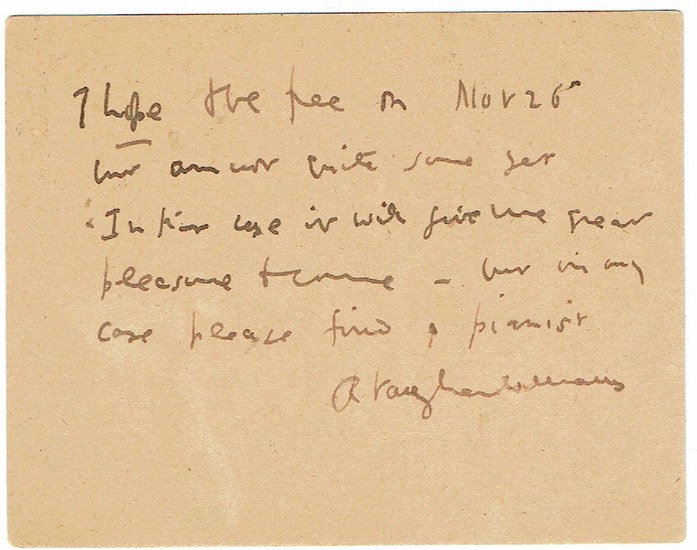 I hope to be free on Nov 26
but am not quite sure yet
In that case it will give me great
pleasure to come – but in any
case please find a pianist
R Vaughan Williams